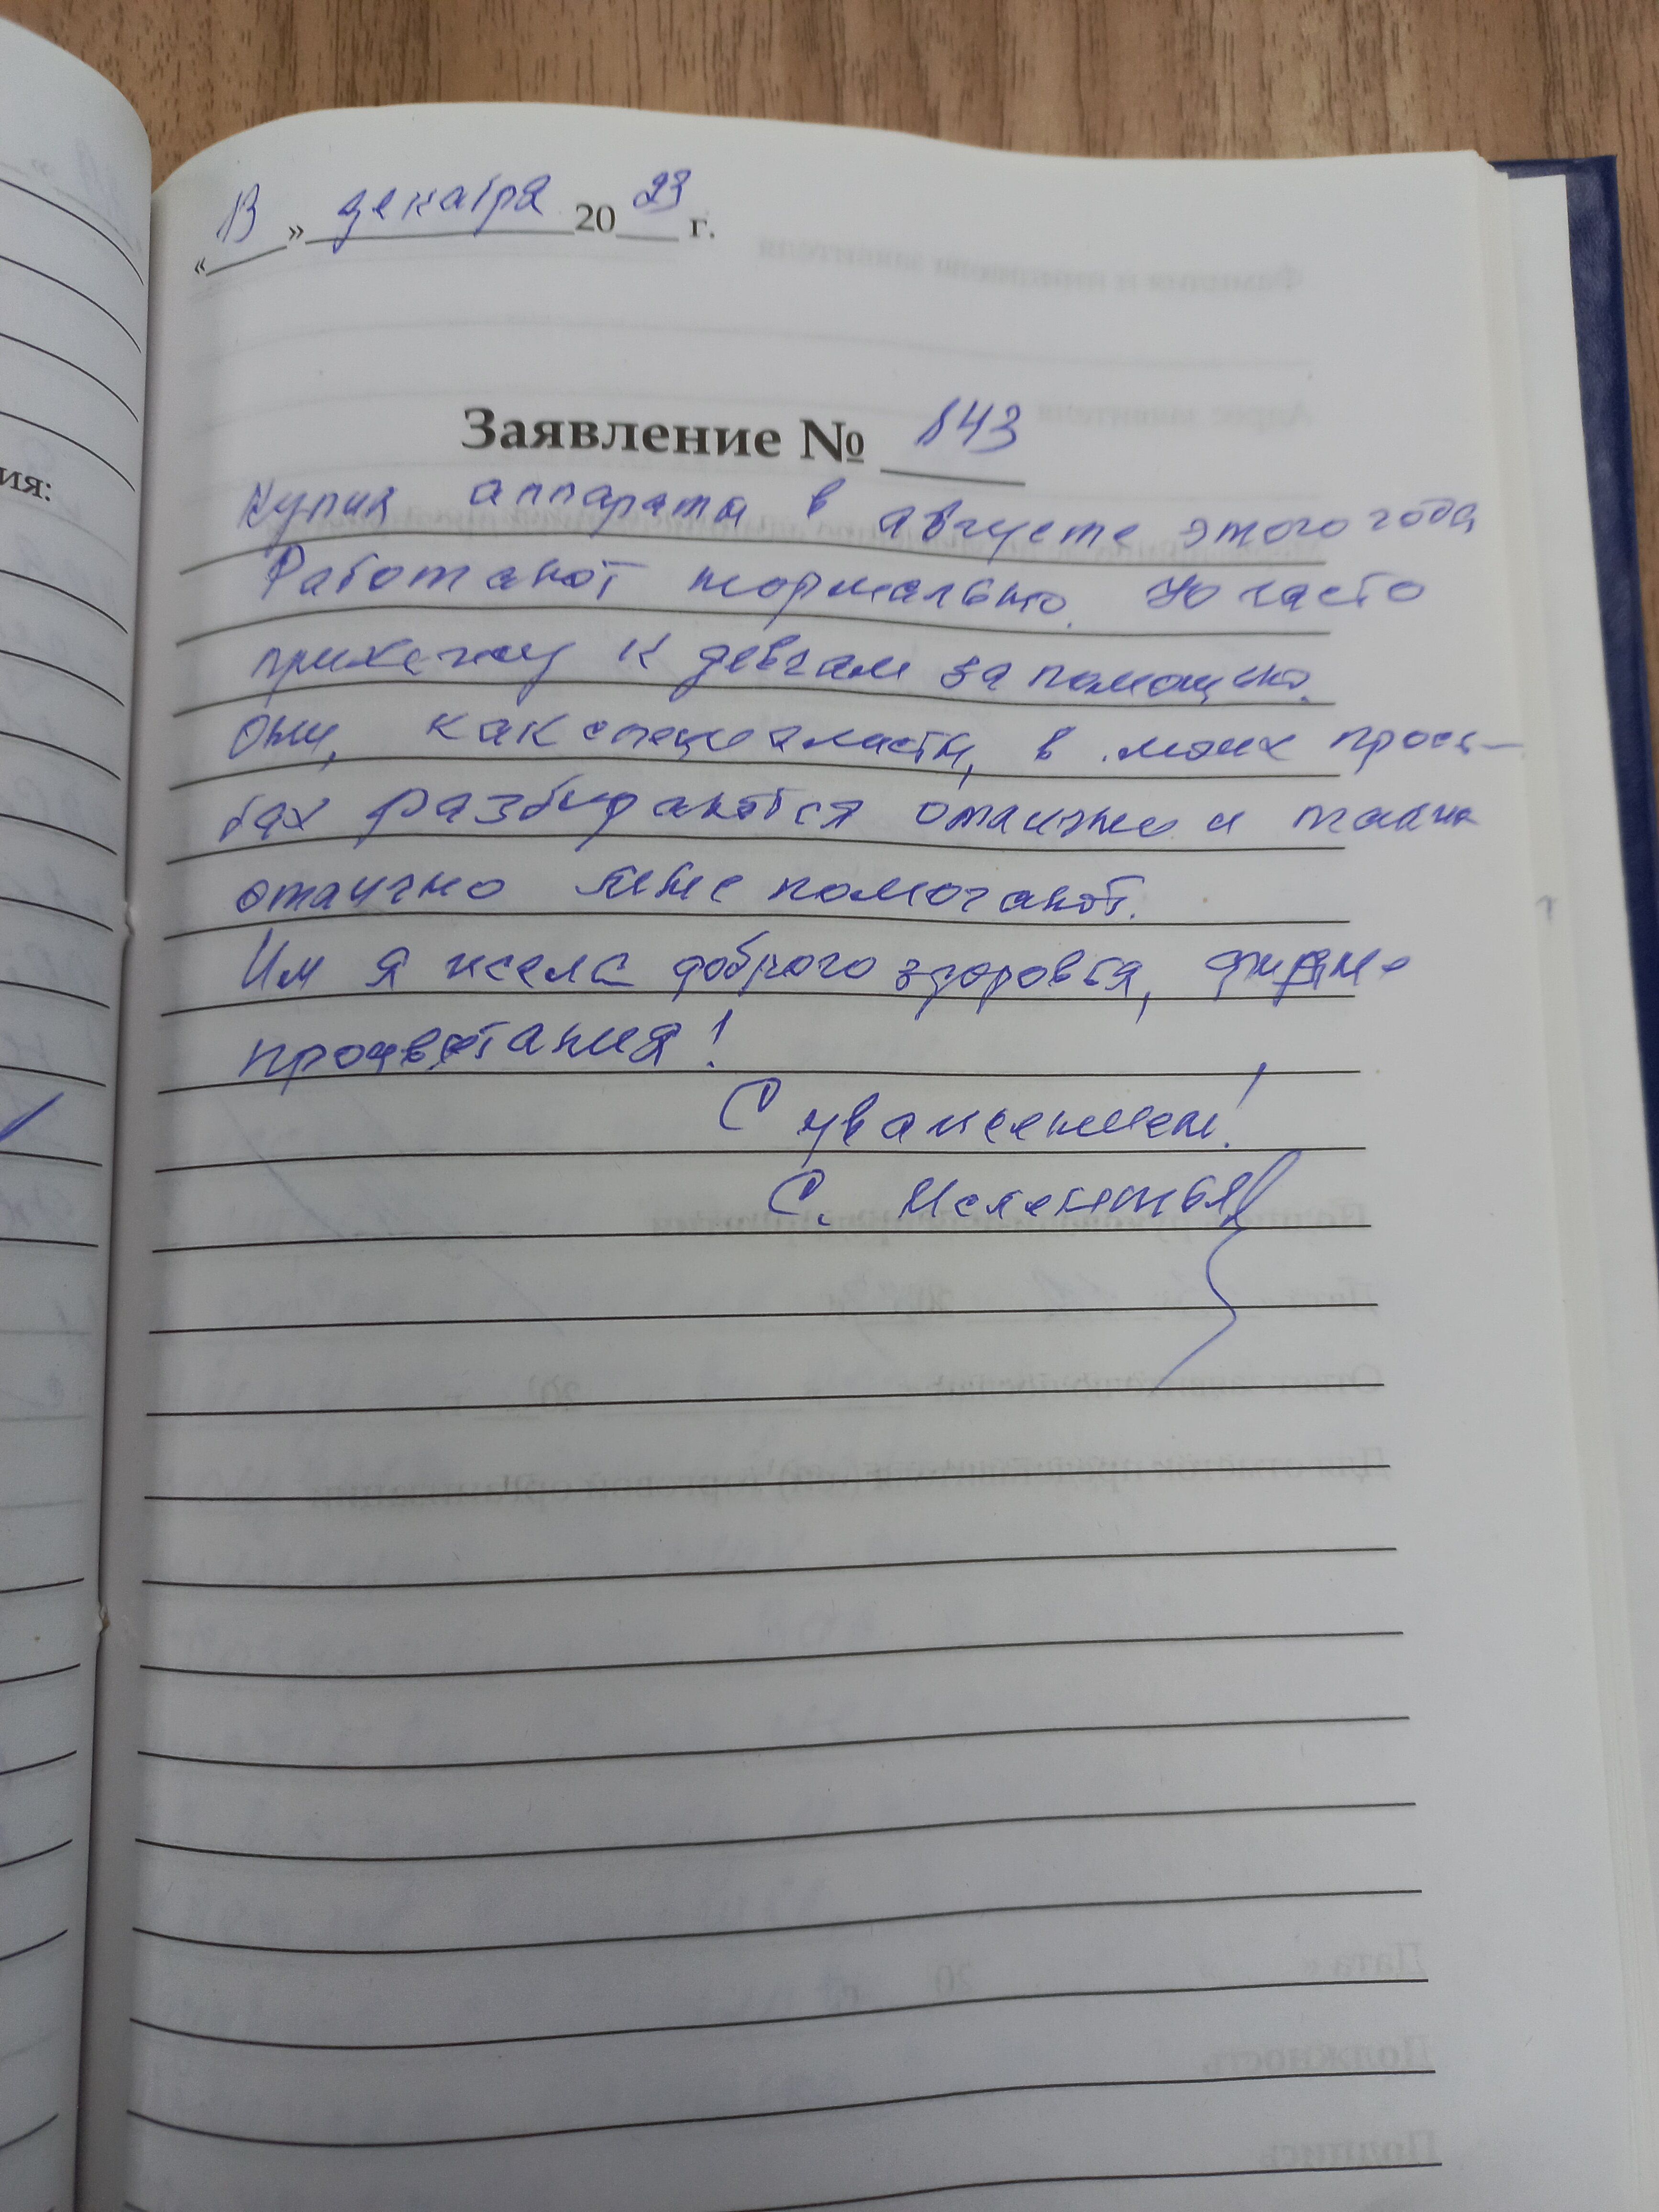 «13» декабря 2023 г.
Заявление № 143
Купил аппараты в августе этого года
Работают нормально. Но часто
прихожу к девчам за помощью.
Они, как специалисты, в моих прось-
бах разбираются отлично и
отлично мне помогают.
Им я желаю доброго здоровья,
процветания!
С уважением!
С.
ия: